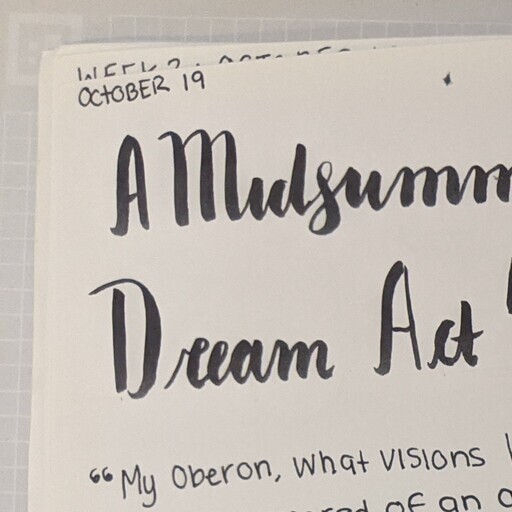 OCTOBER 19
A Midsumm
Dream Act
“My Oberon, what visions
of an